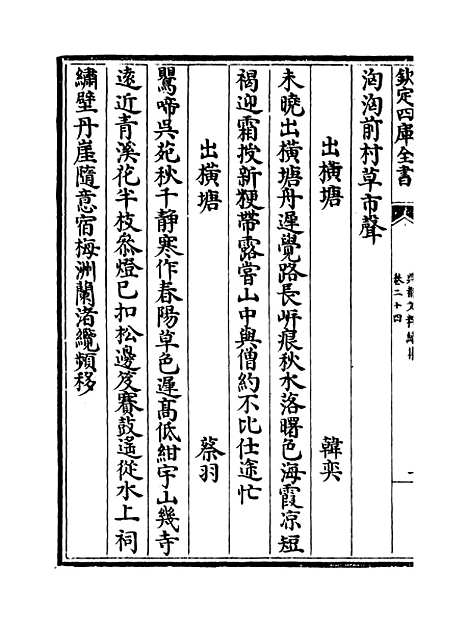 欽定四庫全書
卷二十四
洶洶前村草市聲
出橫塘 韓奕
未曉出橫塘舟遲覺路長岸痕秋水落曙色海霞凉短
褐迎霜授新粳帶露嘗山中與僧約不比仕途忙
出橫塘 蔡羽
鸎啼吳苑秋千静寒作春陽草色遲髙低紺宇山幾寺
逺近青溪花半枝叅燈已扣松邊笈賽鼓遙從水上祠
繡壁丹崖隨意宿梅洲蘭渚纜頻移